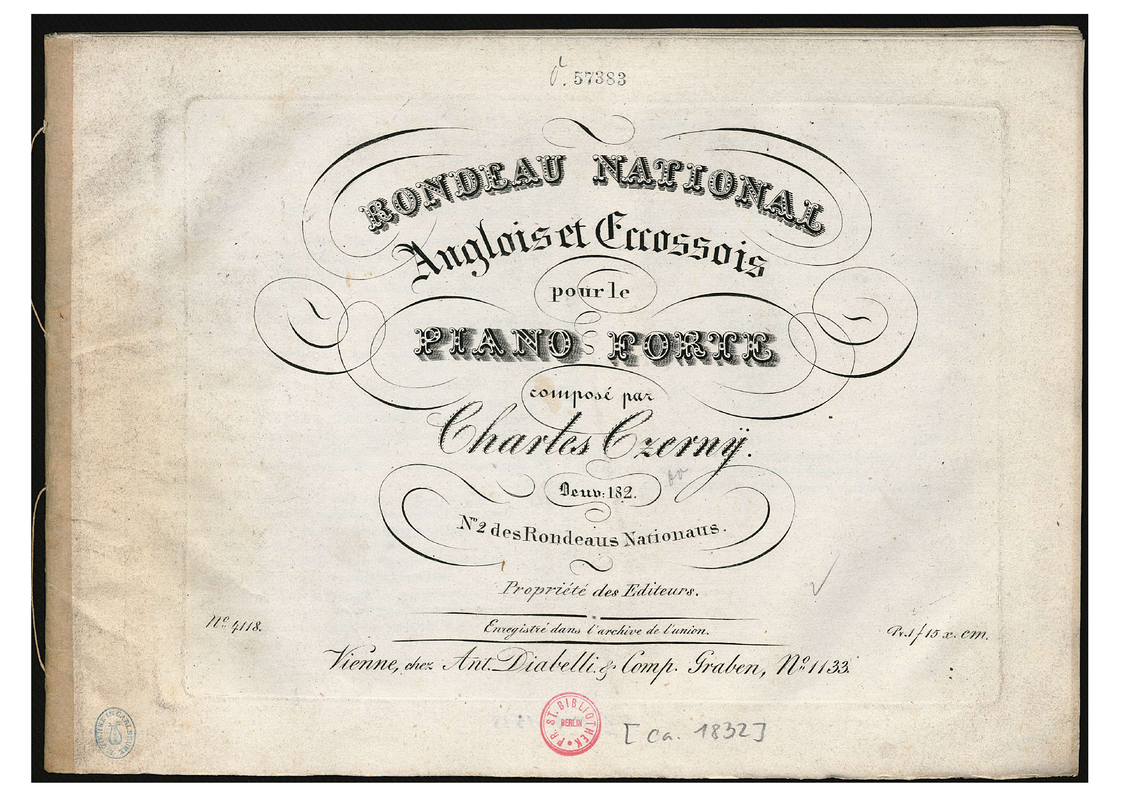 57383
RONDEAU NATIONAL
Anglois et Eccossois
pour le
PIANO FORTE
composé par
Charles Czernÿ.
Oeuv: 182.
No 2 des Rondeaus Nationaus.
Propriété des Editeurs.
No 4118.
Enregistré dans l'archive de l'union.
Pr. 1 f 15 x. C.M.
Vienne, chez Ant. Diabelli & Comp. Graben, No 1133.
PR. ST. BIBLIOTHEK
BERLIN
[ca. 1832]